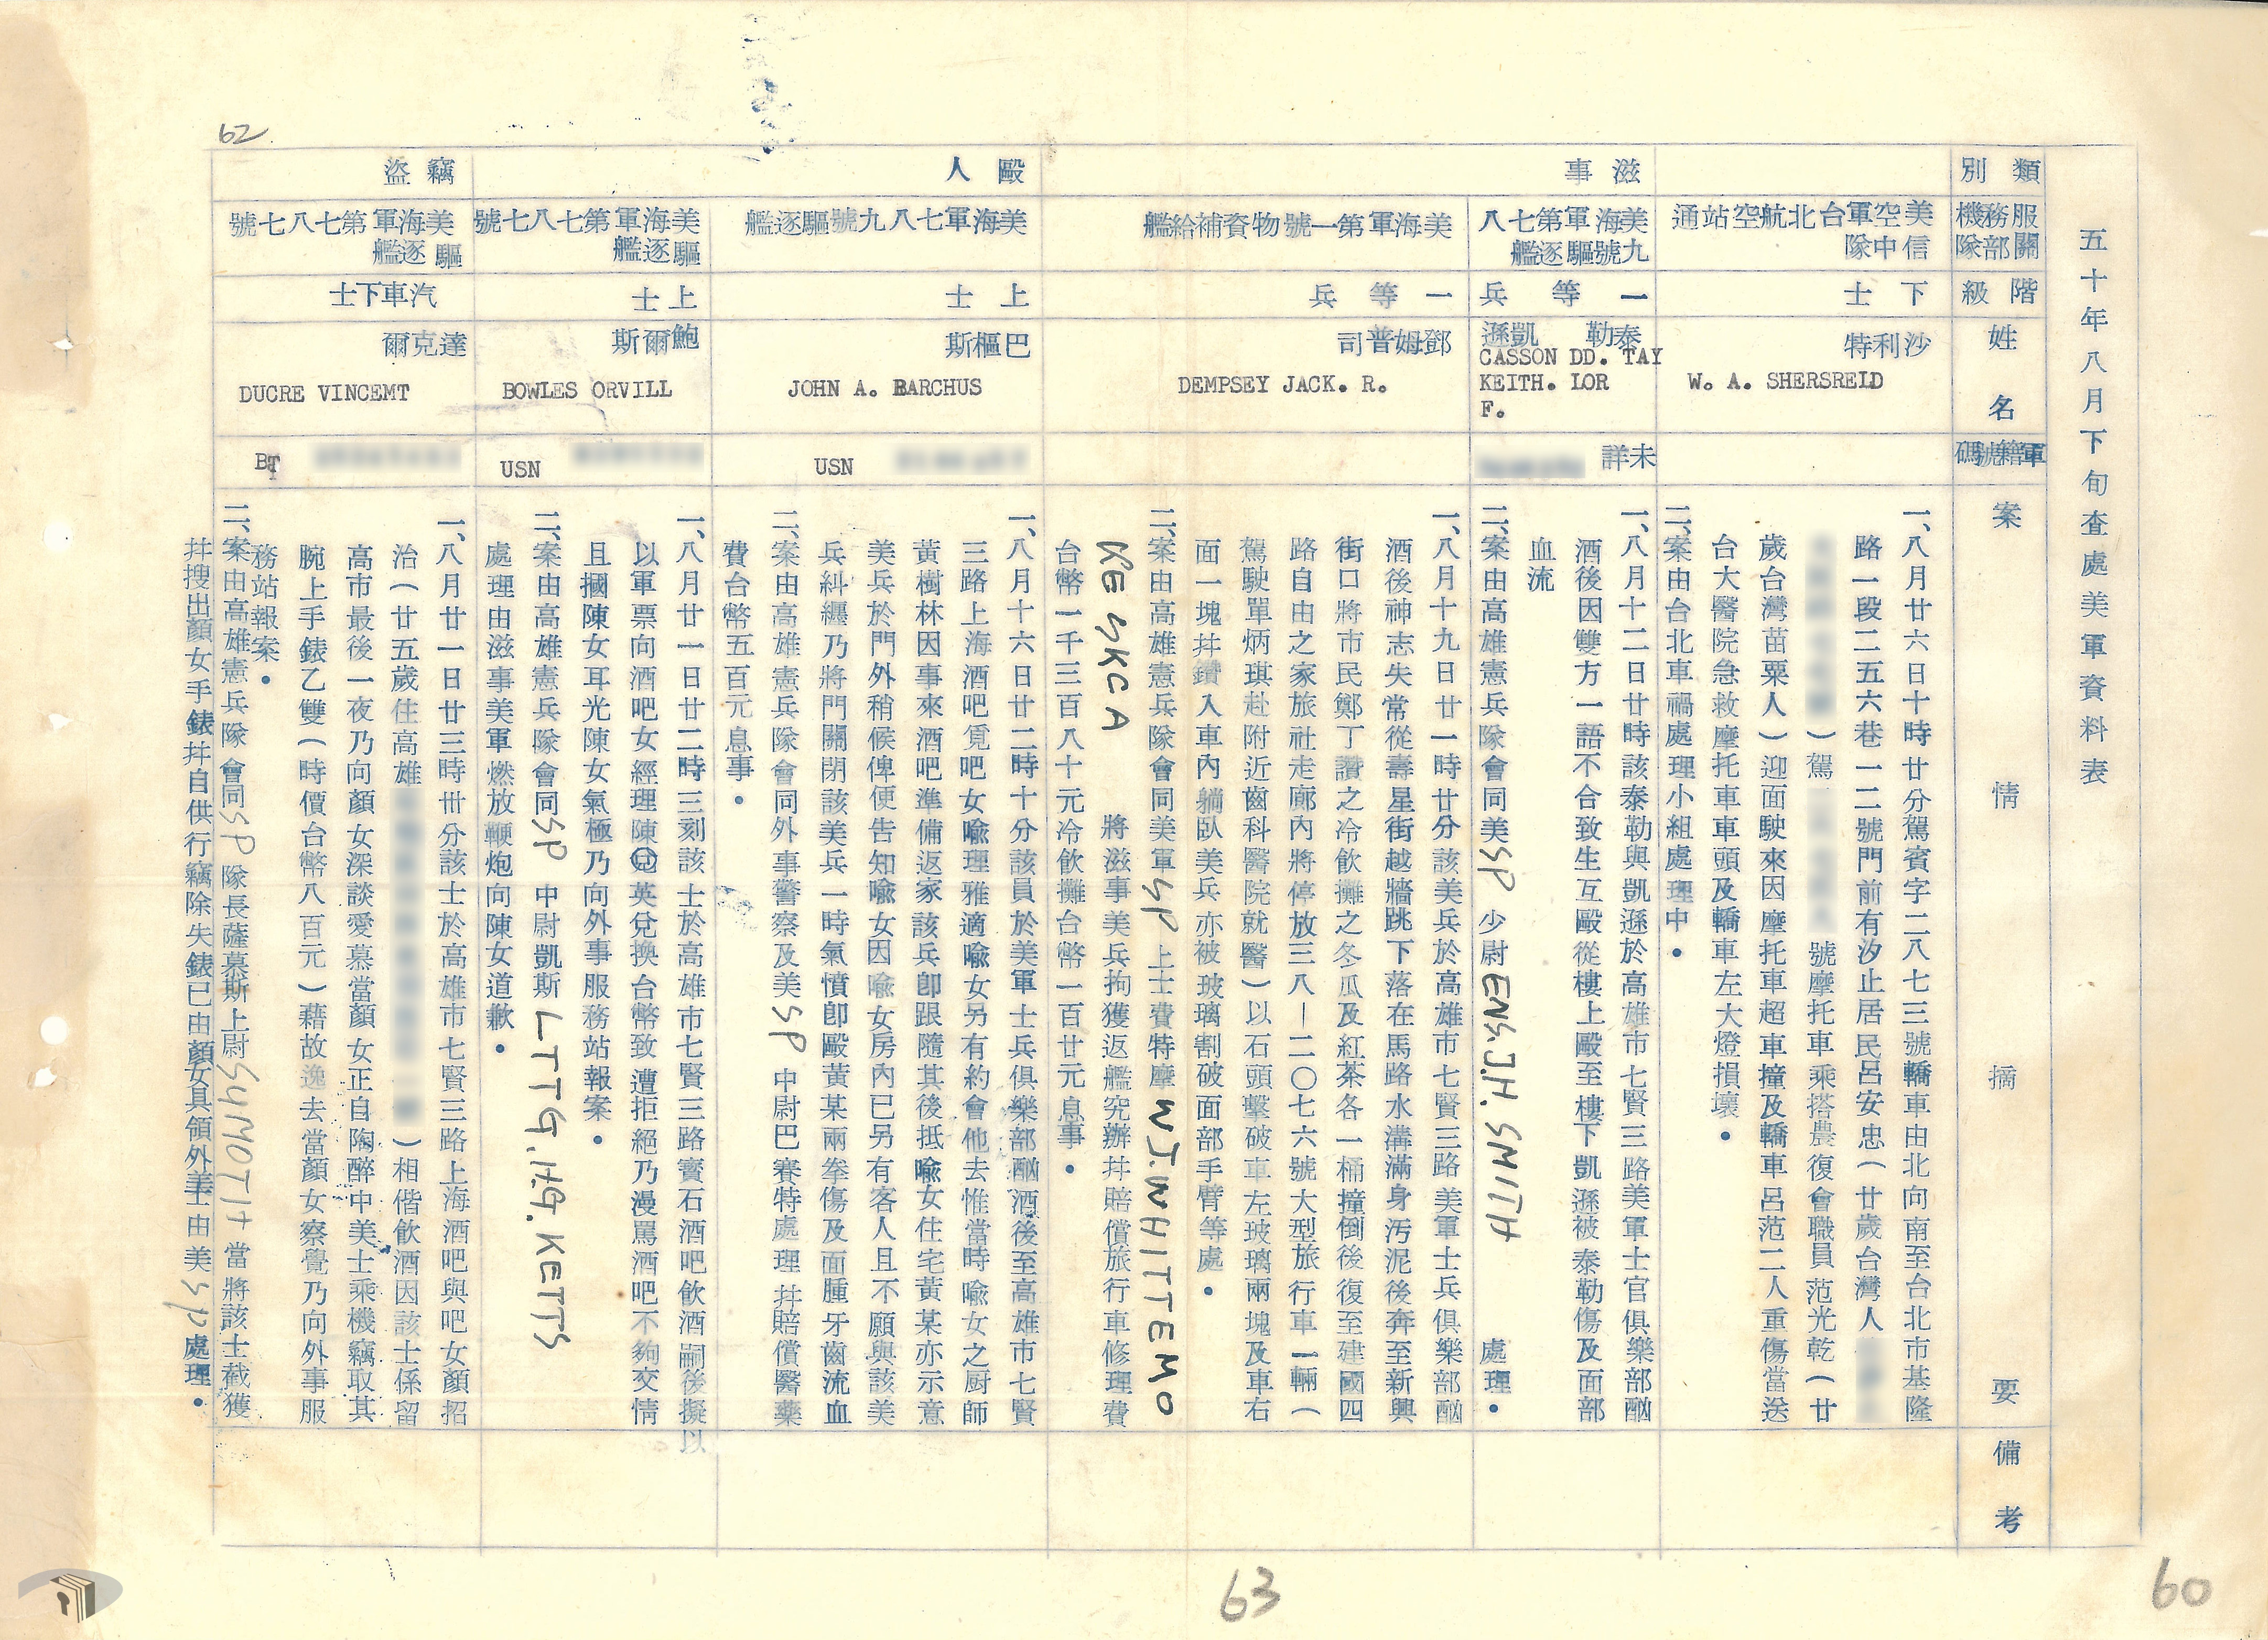 五十年八月下旬查處美軍資料表
類別
服務機關部隊
階級
姓名
軍籍號碼
案情摘要
備考
美空軍台北航空站通信中隊
下士
沙利特
W. A. SHERSREID
一、八月廿六日十時廿分駕賓字二八七三號轎車由北向南至台北市基隆
路一段二五六巷一二號門前有汐止居民呂安忠（廿歲台灣人
）駕 號摩托車乘搭農復會職員范光乾（廿
歲台灣苗粟人）迎面駛來因摩托車超車撞及轎車呂范二人重傷當送
台大醫院急救摩托車車頭及轎車左大燈損壞．
二、案由台北車禍處理小組處理中．
滋事
美海軍第七八九號驅逐艦
一等兵
泰勒 凱遜
CASSON DD. TAY
KEITH. LOR
F.
未詳
一、八月十二日廿時該泰勒與凱遜於高雄市七賢三路美軍士官俱樂部酗
酒後因雙方一語不合致生互毆從樓上毆至樓下凱遜被泰勒傷及面部
血流
二、案由高雄憲兵隊會同美SP少尉ENS.J.H.SMITH 處理．
美海軍第一號物資補給艦
一等兵
鄧姆普司
DEMPSEY JACK. R.
一、八月十九日廿一時廿分該美兵於高雄市七賢三路美軍士兵俱樂部酗
酒後神志失常從壽星街越牆跳下落在馬路水溝滿身汚泥後奔至新興
街口將市民鄭丁讚之冷飲攤之冬瓜及紅茶各一桶撞倒後復至建國四
路自由之家旅社走廊內將停放三八—二〇七六號大型旅行車一輛（
駕駛單炳琪赴附近齒科醫院就醫）以石頭擊破車左玻璃兩塊及車右
面一塊并鑽入車內躺臥美兵亦被玻璃割破面部手臂等處．
二、案由高雄憲兵隊會同美軍SP上士費特摩WJ.WHITTEMO
RESKCA 將滋事美兵拘獲返艦究辦并賠償旅行車修理費
台幣一千三百八十元冷飲攤台幣一百廿元息事．
毆人
美海軍七八九號驅逐艦
上士
巴樞斯
JOHN A. BARCHUS
USN
一、八月十六日廿二時十分該員於美軍士兵俱樂部酗酒後至高雄市七賢
三路上海酒吧覓吧女喩理雅適喩女另有約會他去惟當時喩女之厨師
黃樹林因事來酒吧準備返家該兵卽跟隨其後抵喩女住宅黃某亦示意
美兵於門外稍候俾便告知喩女因喩女房內已另有客人且不願與該美
兵糾纏乃將門關閉該美兵一時氣憤卽毆黃某兩拳傷及面腫牙齒流血
二、案由高雄憲兵隊會同外事警察及美SP中尉巴賽特處理并賠償醫藥
費台幣五百元息事．
美海軍第七八七號驅逐艦
上士
鮑爾斯
BOWLES ORVILL
USN
一、八月廿一日廿二時三刻該士於高雄市七賢三路寶石酒吧飲酒嗣後擬以
以軍票向酒吧女經理陳兒英兌換台幣致遭拒絕乃漫罵酒吧不夠交情
且摑陳女耳光陳女氣極乃向外事服務站報案．
二、案由高雄憲兵隊會同SP中尉凱斯LTTG,HG.KETTS
處理由滋事美軍燃放鞭炮向陳女道歉．
竊盜
美海軍第七八七號驅逐艦
汽車下士
達克爾
DUCRE VINCEMT
BT
一、八月廿一日廿三時卅分該士於高雄市七賢三路上海酒吧與吧女顏招
治（廿五歲住高雄 ）相偕飲酒因該士係留
高市最後一夜乃向顏女深談愛慕當顏女正自陶醉中美士乘機竊取其
腕上手錶乙雙（時價台幣八百元）藉故逸去當顏女察覺乃向外事服
務站報案．
二、案由高雄憲兵隊會同SP隊長薩慕斯上尉SYMOTH當將該士截獲
并搜出顏女手錶并自供行竊除失錶已由顏女具領外美士由美SP處理．
62
63
60